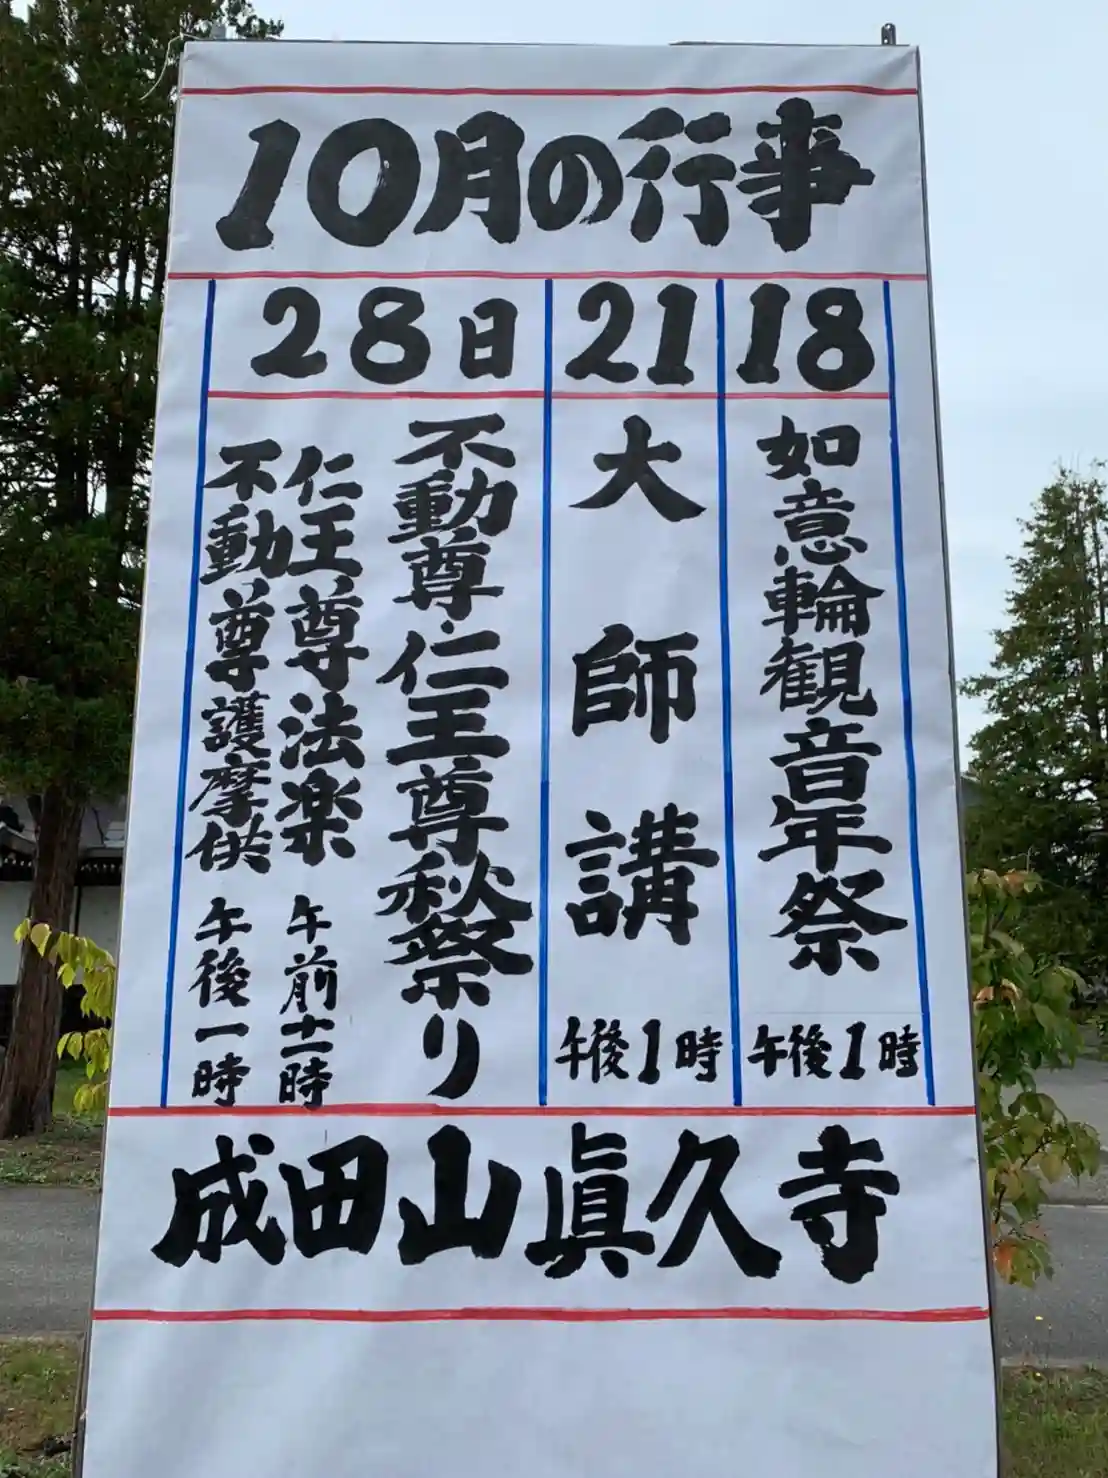 10月の行事
18
如意輪観音年祭
午後1時
21
大師講
午後1時
28日
不動尊・仁王尊秋祭り
仁王尊法楽 午前十一時
不動尊護摩供 午後一時
成田山眞久寺